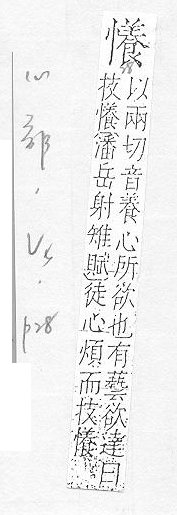 懩
以兩切音養心所欲也有藝欲達曰
技懩潘岳射雉賦徒心煩而技懩
心部, p28